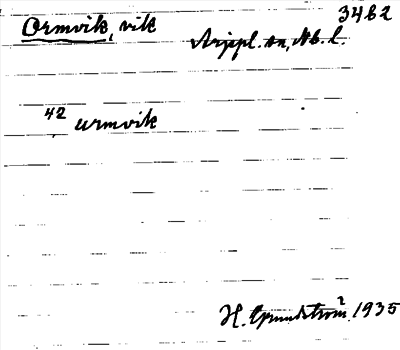 Ormvik, vik 3462
Arjepl. sn, Nb. l.
42 urmvik
H. Grundström 1935